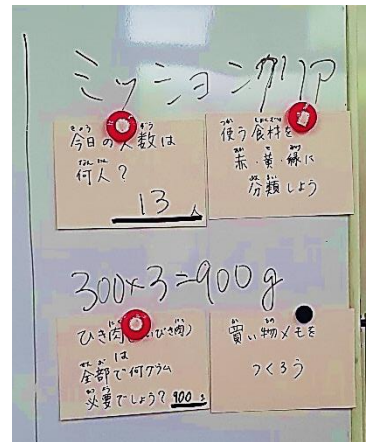 ミッションクリア
今日の人数は
何人？
13人
使う食材を
赤・黄・緑に
分類しよう
300×3=900g
ひき肉(あいびき肉)
は
全部で何グラム
必要でしょう？900g
買い物メモを
つくろう